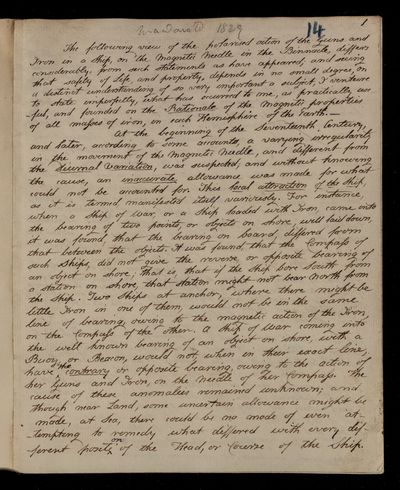 Macdonald 1829
14
1
The following view of the polarised action of the Guns and
Iron in a Ship, on the Magnetic Needle in the Binnacle, differs
considerably from such statements as have appeared; and seeing
that safety of Life and property, depends in no small degree, on
a distinct understanding of so very important a subject, I venture
to state imperfectly, what has occurred to me, as practically use
-ful, and founded on the Rationale of the Magnetic properties
of all masses of iron, in each Hemisphere of the Earth.—
At the beginning of the Seventeenth Century,
and later, according to some accounts, a varying irregularity
in the movement of the Magnetic Needle, and different from
the diurnal Variation, was suspected; and without knowing
the cause, an inaccurate allowance was made for what
could not be accounted for. This local attraction of the Ship,
as it is termed manifested itself variously. For instance,
when a Ship of War, or a Ship loaded with Iron, came into
the bearing of two points, or objects on shore, well laid down,
it was found, that the bearing on board, differed from
that between the objects. It was found, that the Compass of
such Ships did not give the reverse, or opposite bearing of
an object on shore; That is, that if the Ship bore South from
a station on shore, that station might not bear North from
the Ship. Two Ships at anchor, where there might be
little Iron in one of them, would not be in the same
line of bearing, owing to the magnetic action of the Iron,
on the Compass of the other. A Ship of War coming into
the well known bearing of an object on shore, with a
Buoy, or Beacon, would not, when in their exact line,
have the contrary or opposite bearing, owing to the action of
her Guns and Iron, on the Needle of her Compass. The
cause of these anomalies remained unknown; and
though near Land, some uncertain allowance might be
made, at Sea, there could be no mode of even at-
-tempting to remedy what differed with every dif-
ferent position of the Head, or Course of the Ship.